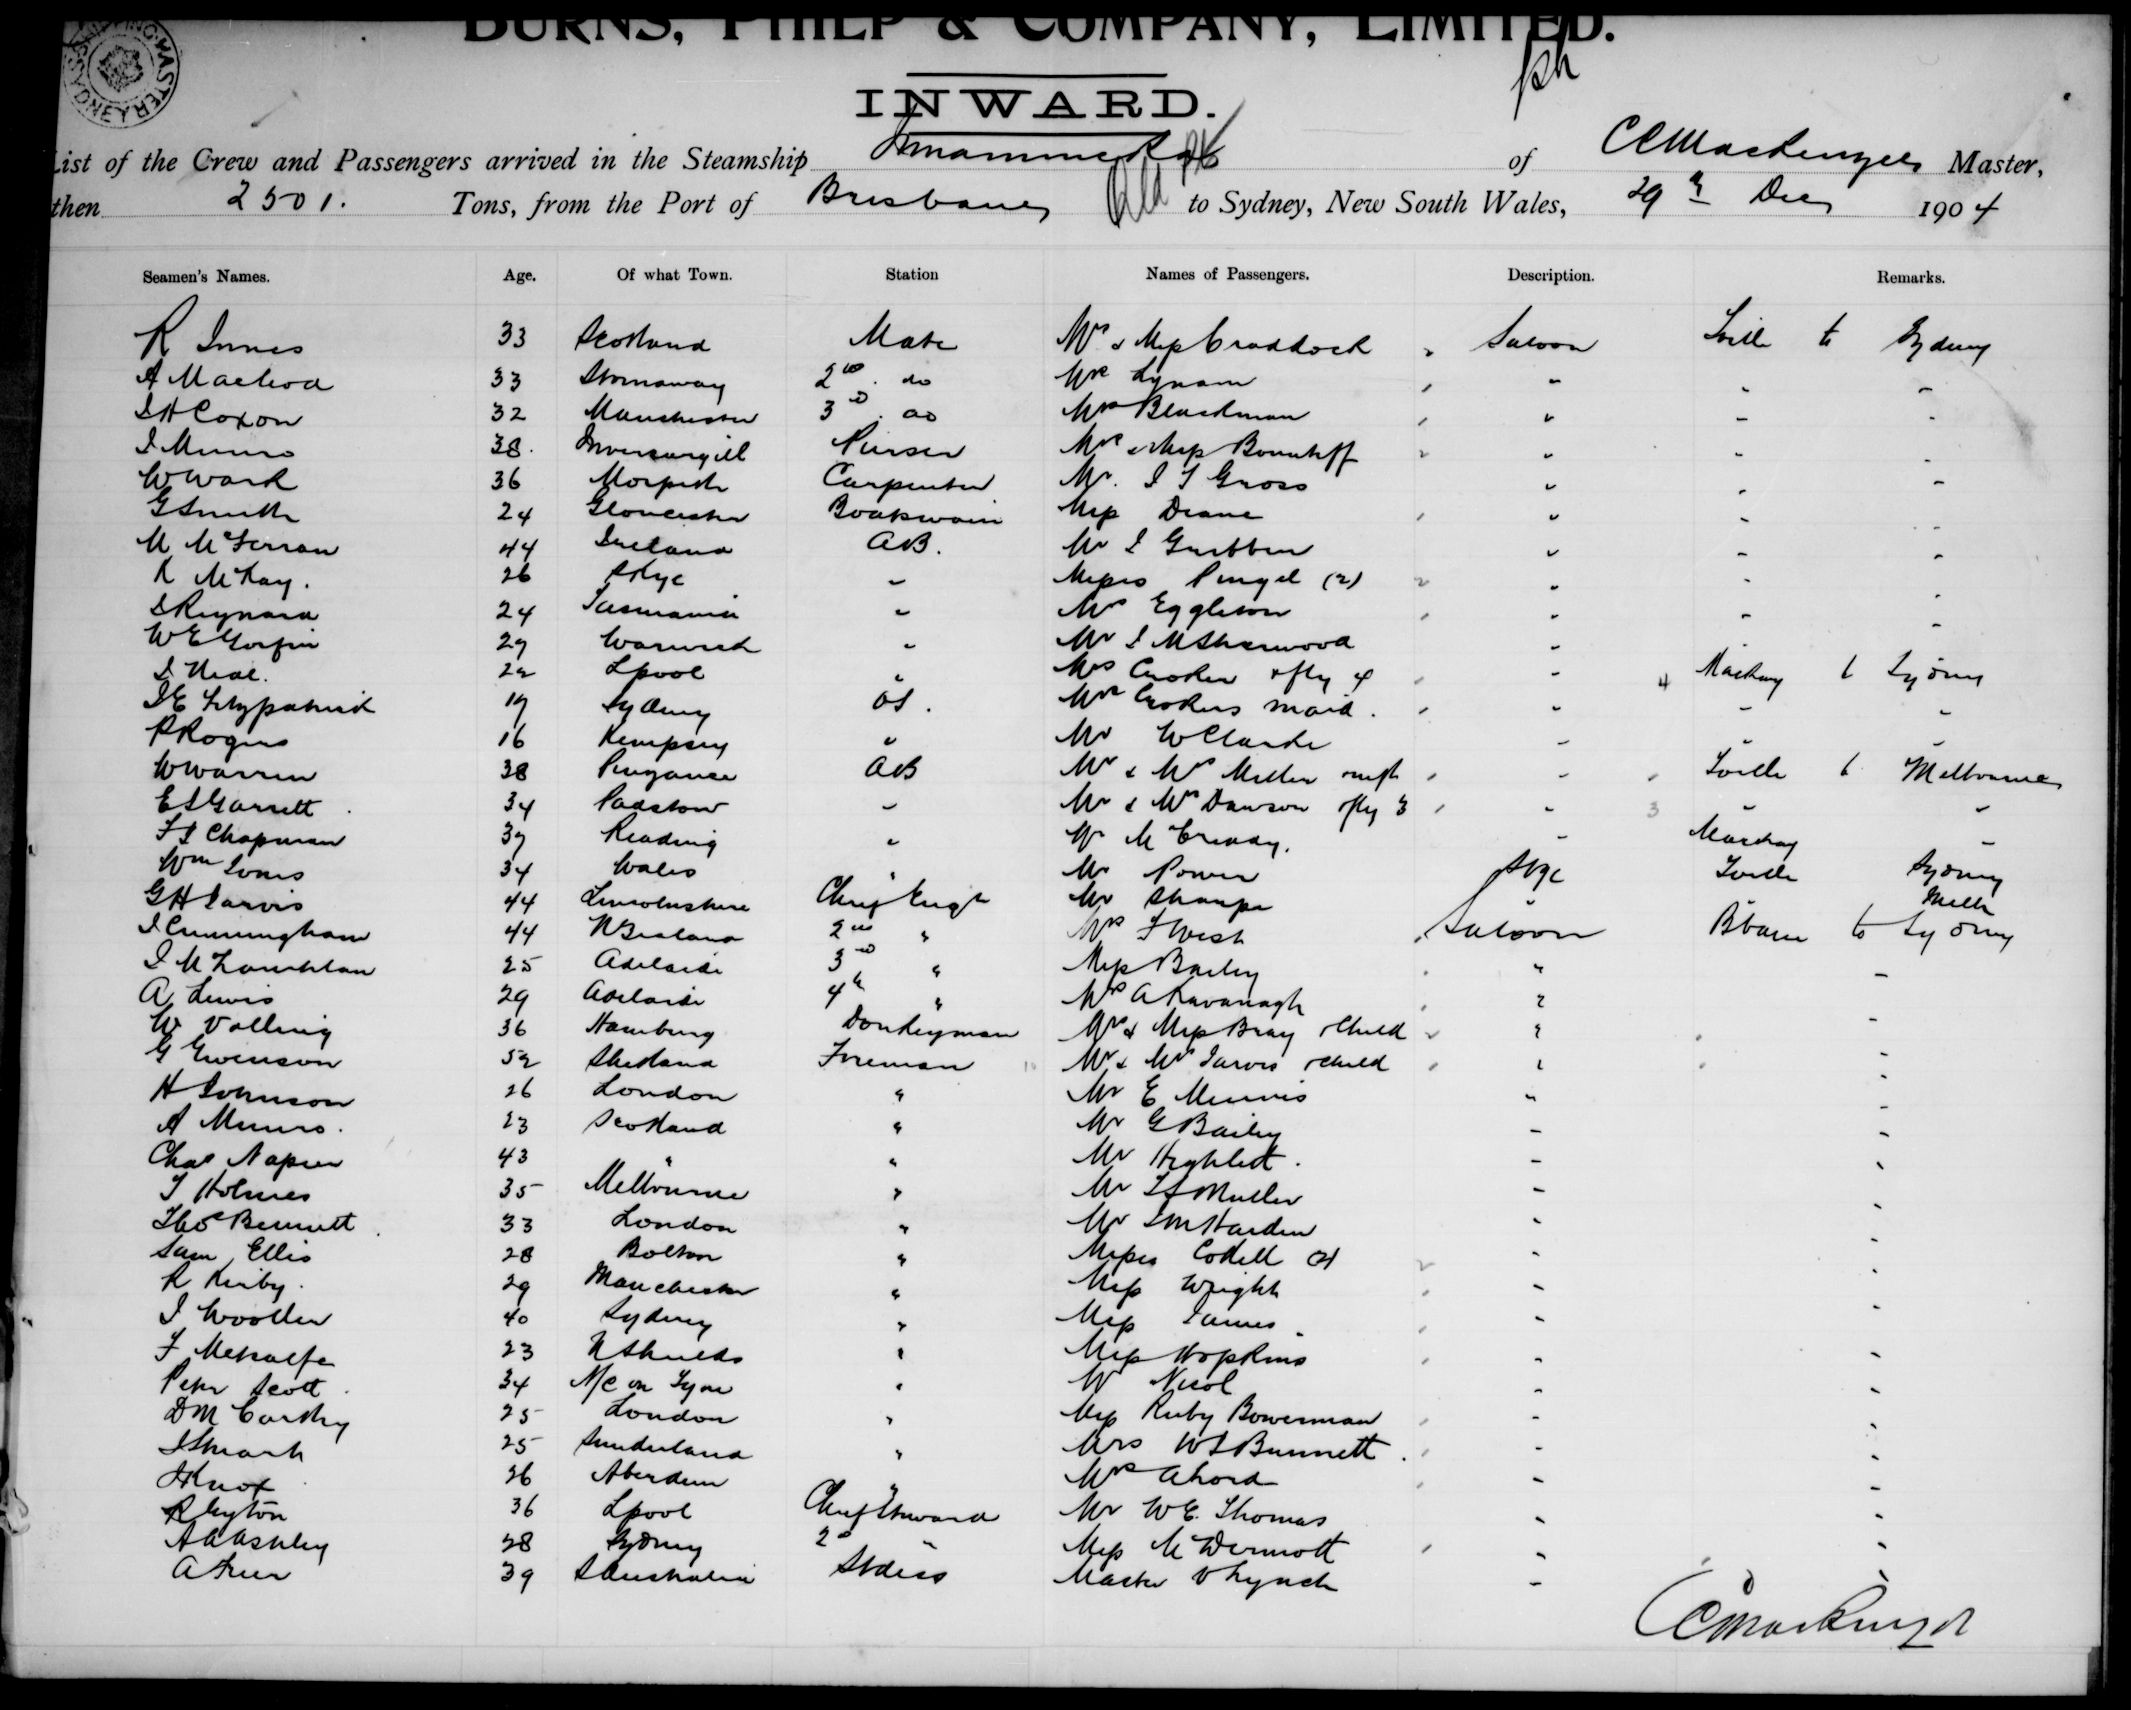 BURNS, PHILP & COMPANY, LIMITED.
INWARD.
SHIPPING MASTER SYDNEY
List of the Crew and Passengers arrived in the Steamship Innamincka of C C Mackenzie Master,
then 2501. Tons, from the Port of Brisbane Qld to Sydney, New South Wales, 29 Dec 1904
Seamen's Names. Age. Of what Town. Station Names of Passengers. Description. Remarks.
R Innes 33 Scotland Mate Mrs & Miss Craddock " Saloon Tville to Sydney
A Macleod 33 Stornaway 2nd. do Mrs Lynam
J H Coxon 32 Manchester 3rd. do Mrs Blackman
J Munro 38. Invercargill Purser Mrs & Miss
W Wark 36 Morpeth Carpenter Mr. J T Gross
G Smith 24 Gloucester Boatswain Miss Deane
M McFerran 44 Ireland AB. Mr J Gribben
R McKay. 26 Skye " Misses Pingel (2)
J Reynard 24 Tasmania " Mrs Eggleton
W E 29 Warwick " Mr J M Sherwood
J Neal. 22 Lpool " Mrs Croker & fly 4 " 4 Mackay t Sydney
J E Fitzpatrick 19 Sydney OS. Mrs Crokers maid.
R Rogers 16 Kempsey " Mr W Clarke
W Warren 38 Penzance AB Mr & Mrs Miller " Tville t Melbourne
E S Garrett 34 Padstow " Mr & Mrs Dawson & fly 3 " 3 "
F J Chapman 37 Reading " Mr McCready. " Mackay "
Wm Jones 34 Wales " Mr Power Stge Tville Sydney
G H Jarvis 44 Lincolnshire Chief Engr Mr Sharpe " " Melb
J Cunningham 44 N Zealand 2nd " Mrs F West Saloon Bbane to Sydney
J McLauchlan 25 Adelaide 3rd " Miss Bailey
A Lewis 29 Adelaide 4th " Mrs A Kavanagh
W Volling 36 Hamburg Donkeyman Mrs & Miss Bray & Child
G 52 Shetland Fireman Mr & Mrs Jarvis & child
H Johnson 26 London " Mr E
A Munro. 23 Scotland " Mr G Bailey
Chas Napier 43 " " Mr Highlett.
T Holmes 35 Melbourne " Mr Muller
Thos Bennett 33 London " Mr J M Harden
Sam Ellis 28 Bolton " Misses
R Kirby. 29 Manchester " Miss Wright
J Woollen 40 Sydney " Miss James
F Metcalfe 23 N Shields " Miss Hopkins
Peter Scott 34 N/C on Tyne " Mr Nicol
D McCarthy 25 London " Miss Ruby Bowerman
J Smart 25 Sunderland " Mrs W J Bunnett
J Knox 26 Aberdeen " Mrs
R Leyton 36 Lpool Chief Steward Mr W E. Thomas
A A Ashley 28 Sydney 2d " Miss McDermott
A 39 S Australia Stdess Master V Lynch
C C Mackenzie